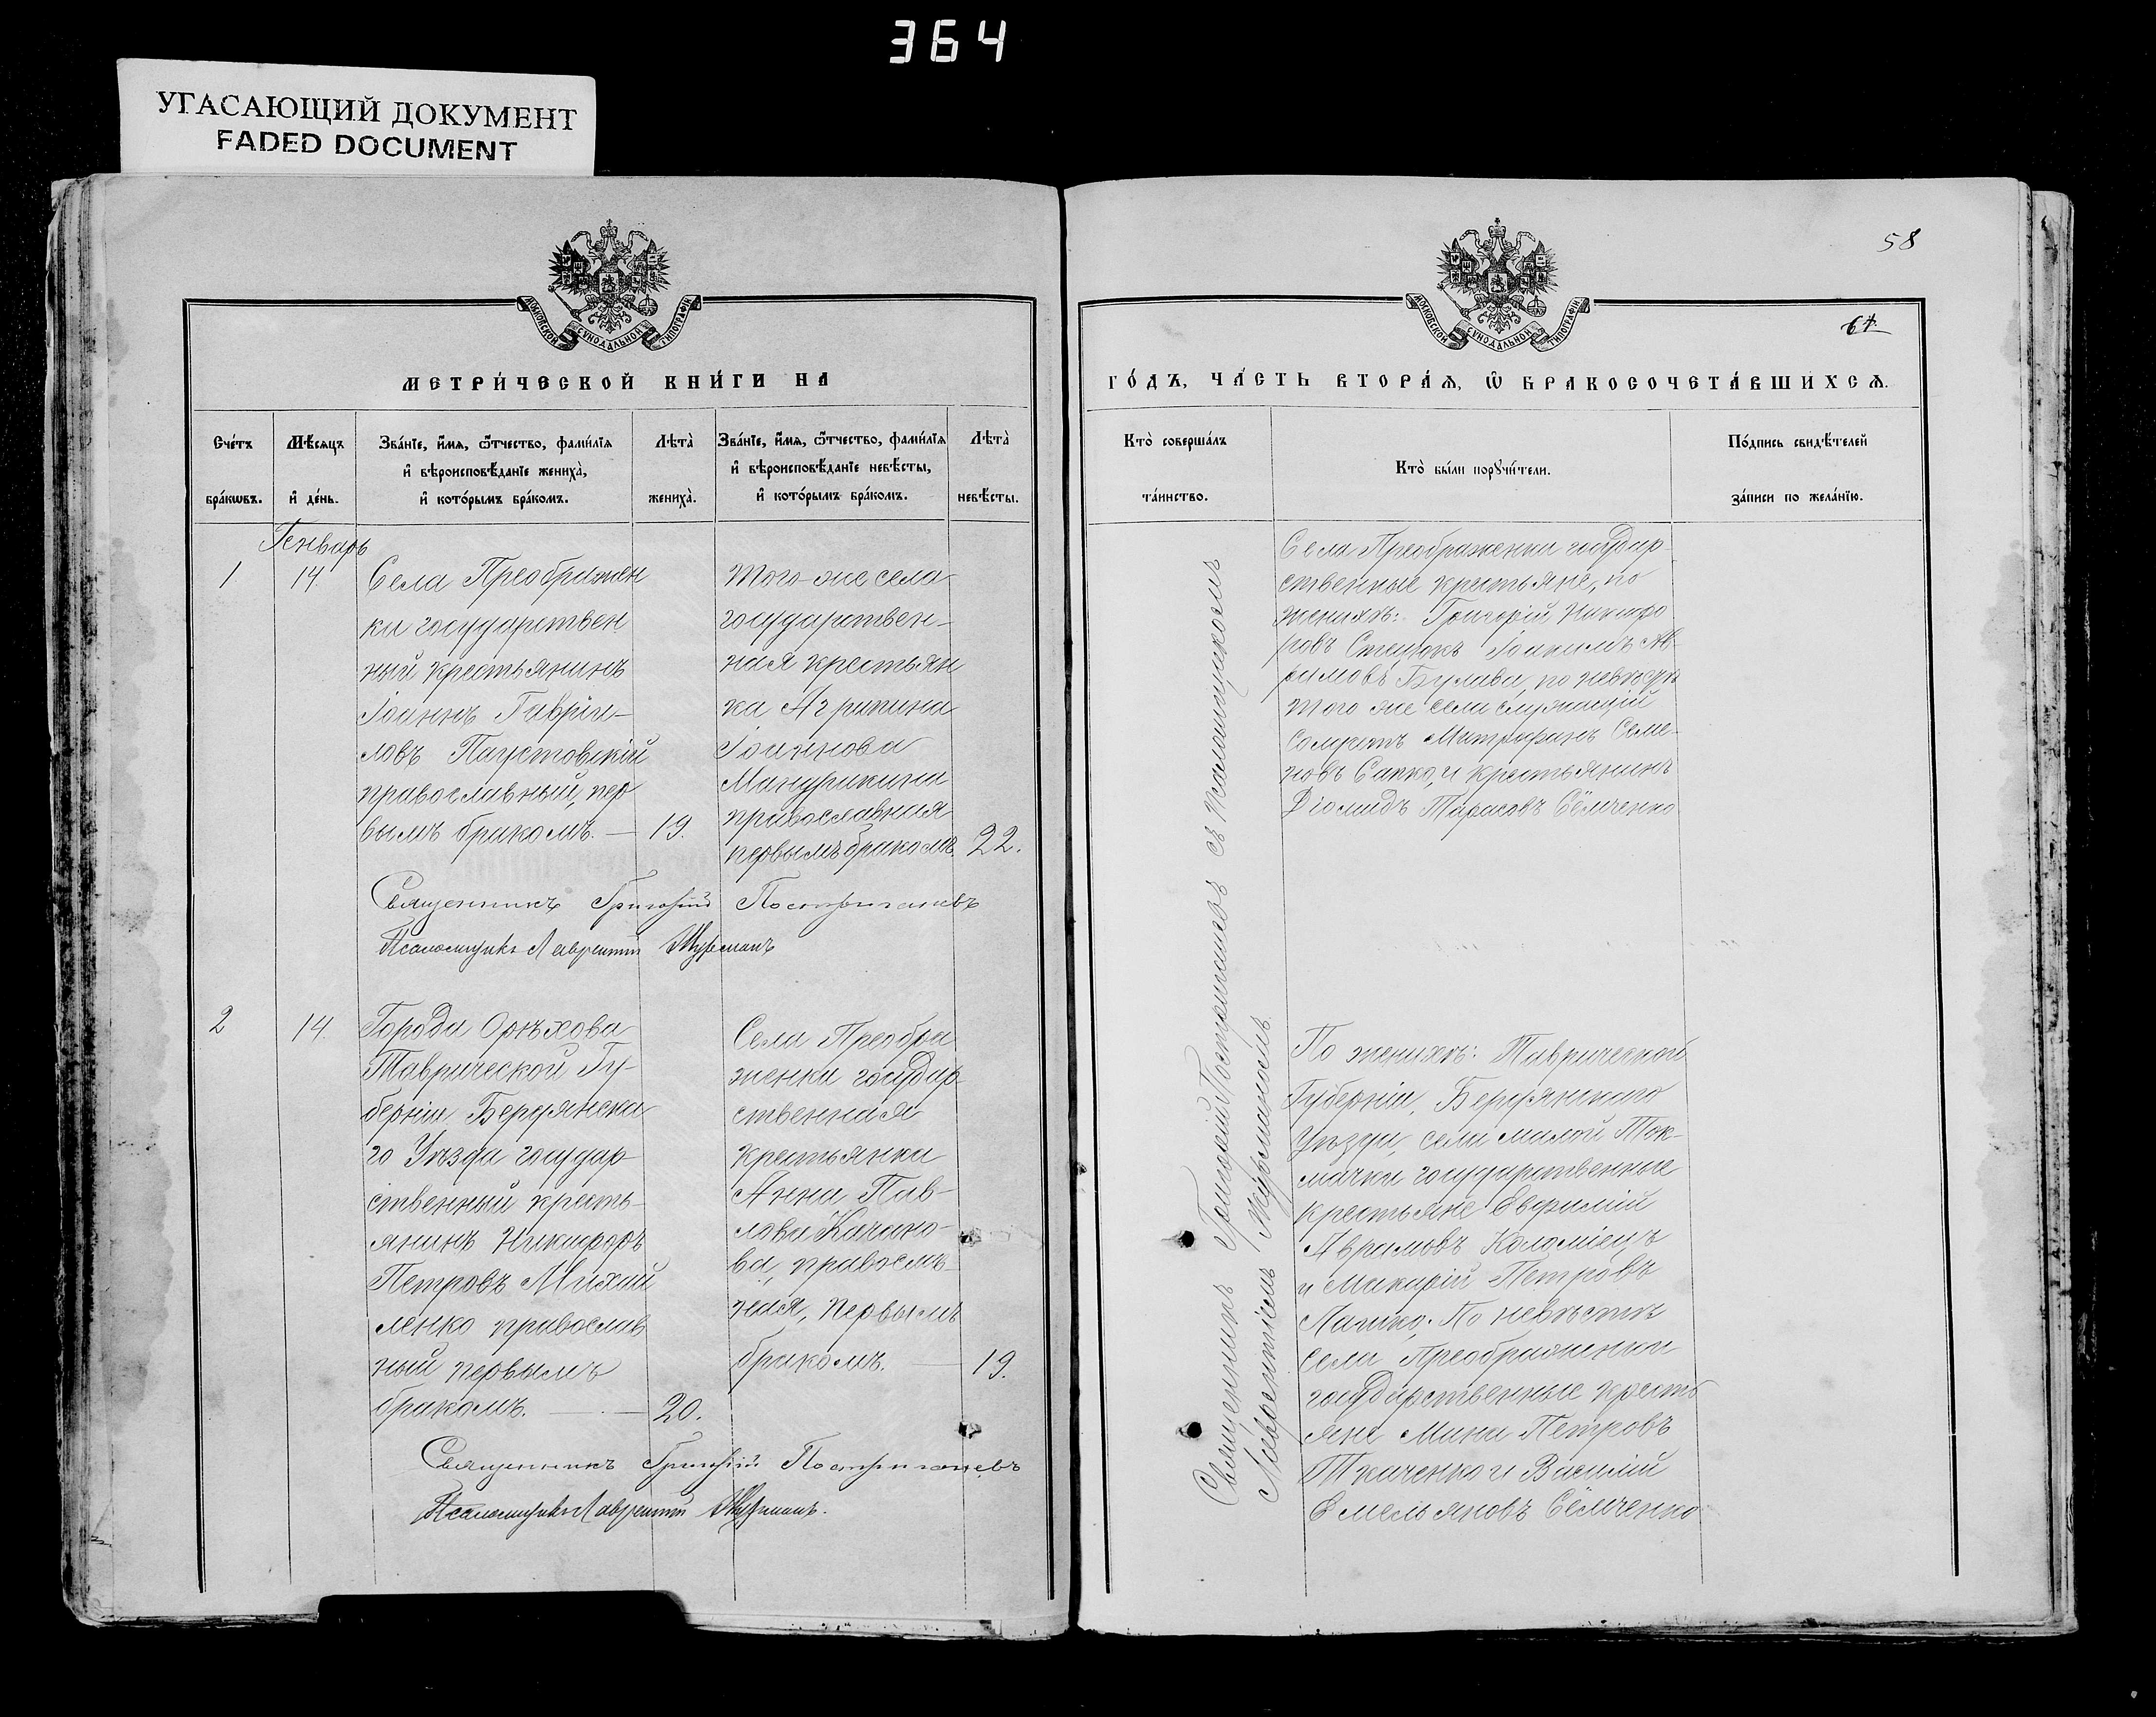 364
УГАСАЮЩИЙ ДОКУМЕНТ
FADED DOCUMENT
МОСКОВСКОЙ СѴНОДАЛЬНОЙ ТИПОГРАФІИ
МЕТРИ́ЧЕСКОЙ КНИ́ГИ НА
Сче́тъ бра́кѡвъ.
Мѣ́сяцъ и҆ де́нь.
Зва́нїе, и҆́мѧ, ѻ҆́тчество, фами́лїѧ
и҆ вѣроисповѣ́данїе жениха̀,
и҆ кото́рымъ бра́комъ.
Лѣ́та̀ жениха̀.
Зва́нїе, и҆́мѧ, ѻ҆́тчество, фами́лїѧ
и҆ вѣроисповѣ́данїе невѣ́сты,
и҆ кото́рымъ бра́комъ.
Лѣ́та̀ невѣ́сты.
Генварь
1
14
Села Преображен
ки государствен
ный крестьянинъ
Іоаннъ Гаврі-
ловъ Паустовскій
православный, пер
вымъ бракомъ. — 19.
Того-же села
государствен-
ная крестьян
ка Агрипина
Іоаннова
православная
первымъ бракомъ. 22.
Священникъ Григорій Постригачевъ
Псаломщикъ Лаврентій Журманъ
2
14.
Города Орѣхова
Таврической Гу-
берніи, Бердянска
го Уѣзда государ
ственный кресть-
янинъ Никифоръ
Петровъ Михай
ленко православ
ный первымъ
бракомъ. — 20.
Села Преобра
женки государ
ственная
крестьянка
Анна Пав-
лова Качано-
ва, правосла-
ная, первымъ
бракомъ. — 19.
Священникъ Григорій Постригачевъ
Псаломщикъ Лаврентій Журманъ.
58
64
МОСКОВСКОЙ СѴНОДАЛЬНОЙ ТИПОГРАФІИ
ГО́ДЪ, ЧА́СТЬ ВТОРА́Ѧ, Ѽ БРАКОСОЧЕТА́ВШИХСѦ.
Кто̀ соверша́лъ
та́инство.
Кто̀ бы́ли порꙋчи́тели.
По́дпись свидѣ́телей
за́писи по жела́нїю.
Священникъ Григорій Постригачевъ съ псаломщикомъ
Лаврентіемъ Журманомъ.
Села Преображенки государ
ственные крестьяне, по
женихѣ: Григорій Никифо
ровъ Стецюкъ Іоакимъ Ав-
рамовъ Булава, по невѣстѣ
того же села служащій
солдатъ Митрофанъ Семе-
новъ Сапко, и крестьянинъ
Діомидъ Тарасовъ Сёмченко
По женихѣ: Таврической
Губерніи, Бердянскаго
Уѣзда, села малой Ток-
мачки государственные
крестьяне Евфимій
Аврамовъ Коломіецъ
и Макарій Петровъ
По невѣстѣ
села Преображенки
государственные кресть
яне Мина Петровъ
Ткаченко и Василій
Емельяновъ Сёмченко